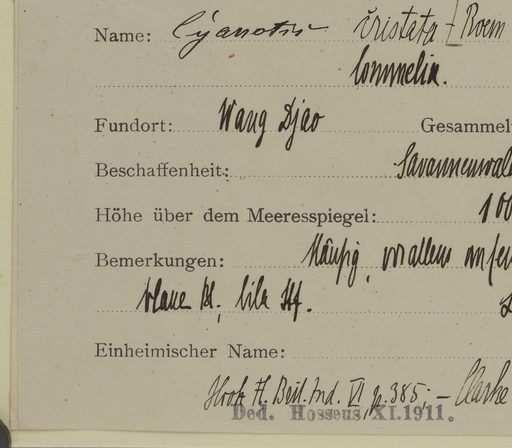 Name: Cyanotis cristata [Roem
Commelin.
Fundort: Wang Djao Gesammel
Beschaffenheit: Savannenwal
Höhe über dem Meeresspiegel: 100
Bemerkungen: Häufig, vor allem
blaue Bl., lila Stf.
Einheimischer Name:
Hook Fl. Brit. Ind. VI, p. 385; – Clarke
Ded. Hosseus XI.1911.